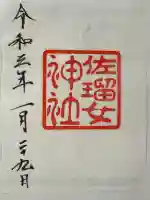 佐瑠女
神社
令和三年一月二九日